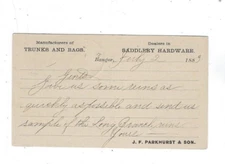 Manufacturers of
TRUNKS AND BAGS.
Dealers in
SADDLERY HARDWARE.
Bangor, July 2 1883
Gents
us some reins as
quickly as possible and send us
sample of the Long
Yours
J. F. PARKHURST & SON.